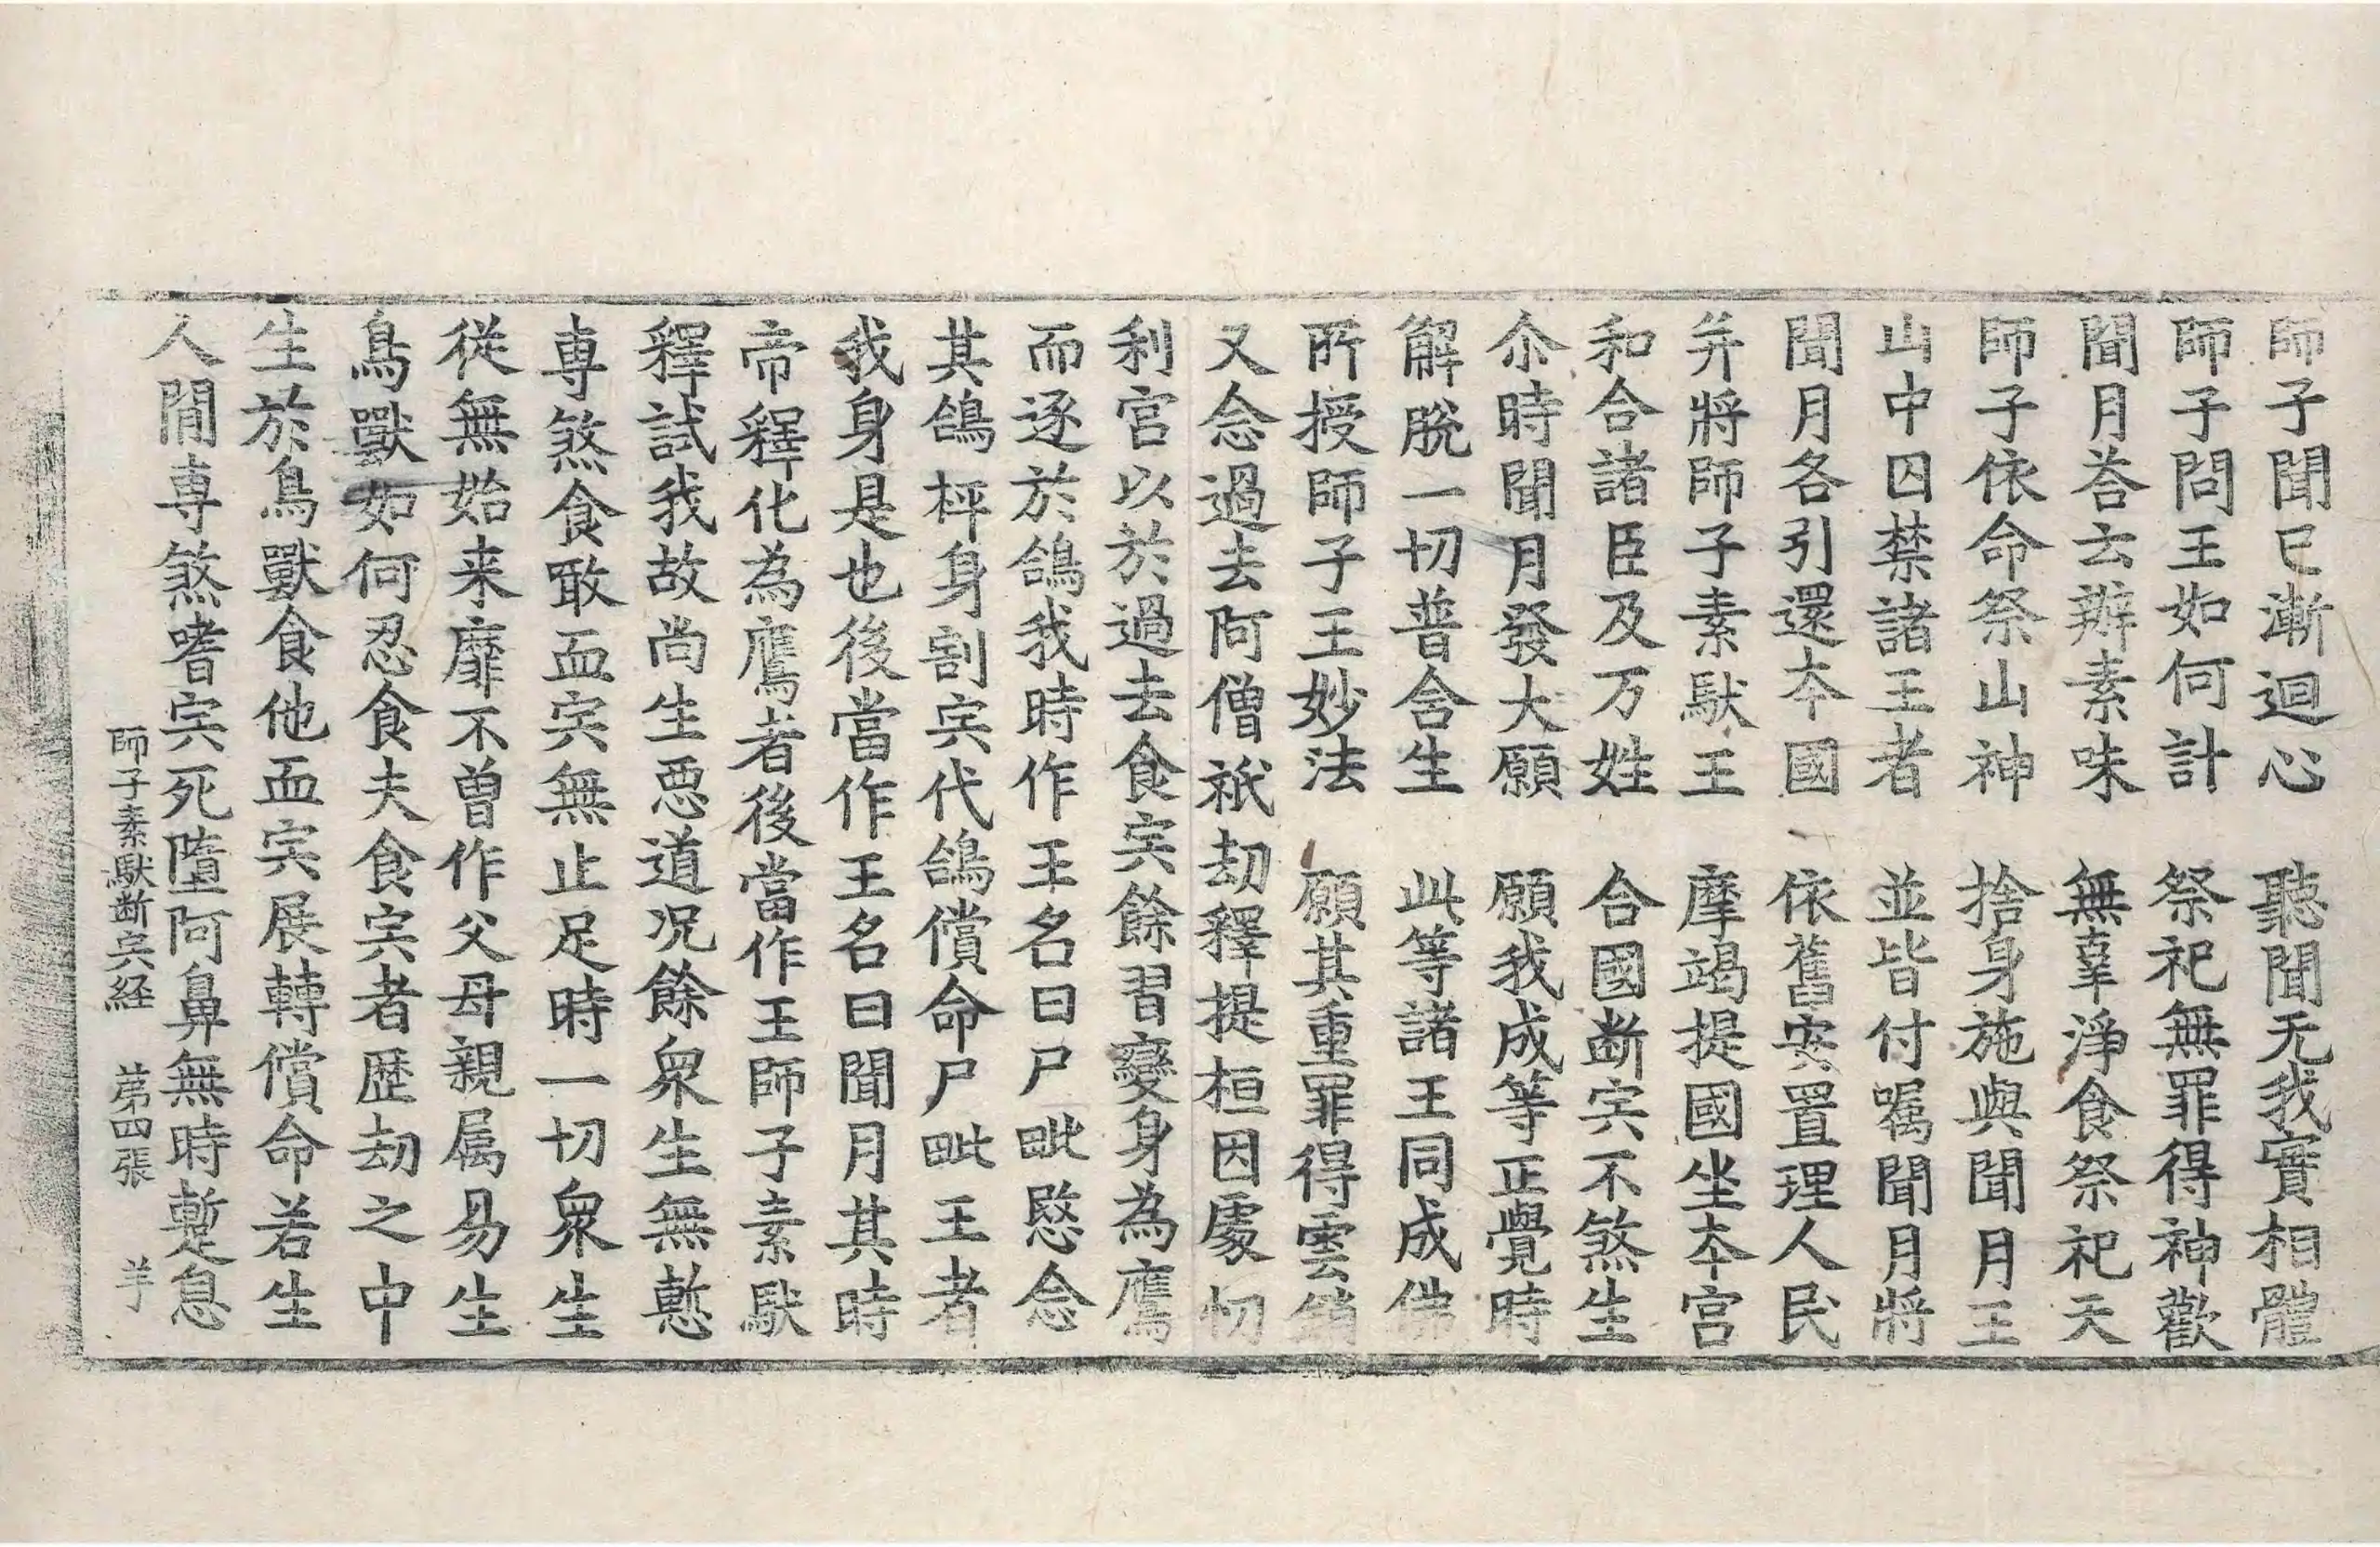 師子聞已漸迴心　聽聞无我實相體
師子問王如何計　祭祀無罪得神歡
聞月荅云辦素味　無辜淨食祭祀天
師子依命祭山神　捨身施與聞月王
山中囚禁諸王者　並皆付囑聞月將
聞月各引還夲國　依舊安置理人民
并將師子素馱王　摩竭提國坐夲宮
和合諸臣及万姓　合國断宍不煞生
尒時聞月發大願　願我成等正覺時
解脫一切普含生　此等諸王同成佛
所授師子王妙法　願其重罪得雲銷
又念過去阿僧祇劫釋提桓因處忉
利宮以於過去食宍餘習變身為鷹
而逐於鴿我時作王名曰尸毗愍念
其鴿枰身割宍代鴿償命尸毗王者
我身是也後當作王名曰聞月其時
帝釋化為鷹者後當作王師子素馱
釋試我故尚生惡道况餘衆生無慙
專煞食噉血宍無止足時一切衆生
從無始来靡不曾作父母親属易生
鳥獸如何忍食夫食宍者歷劫之中
生於鳥獸食他血宍展轉償命若生
人間專煞嗜宍死墮阿鼻無時蹔息
師子素馱断宍経　苐四張　羊